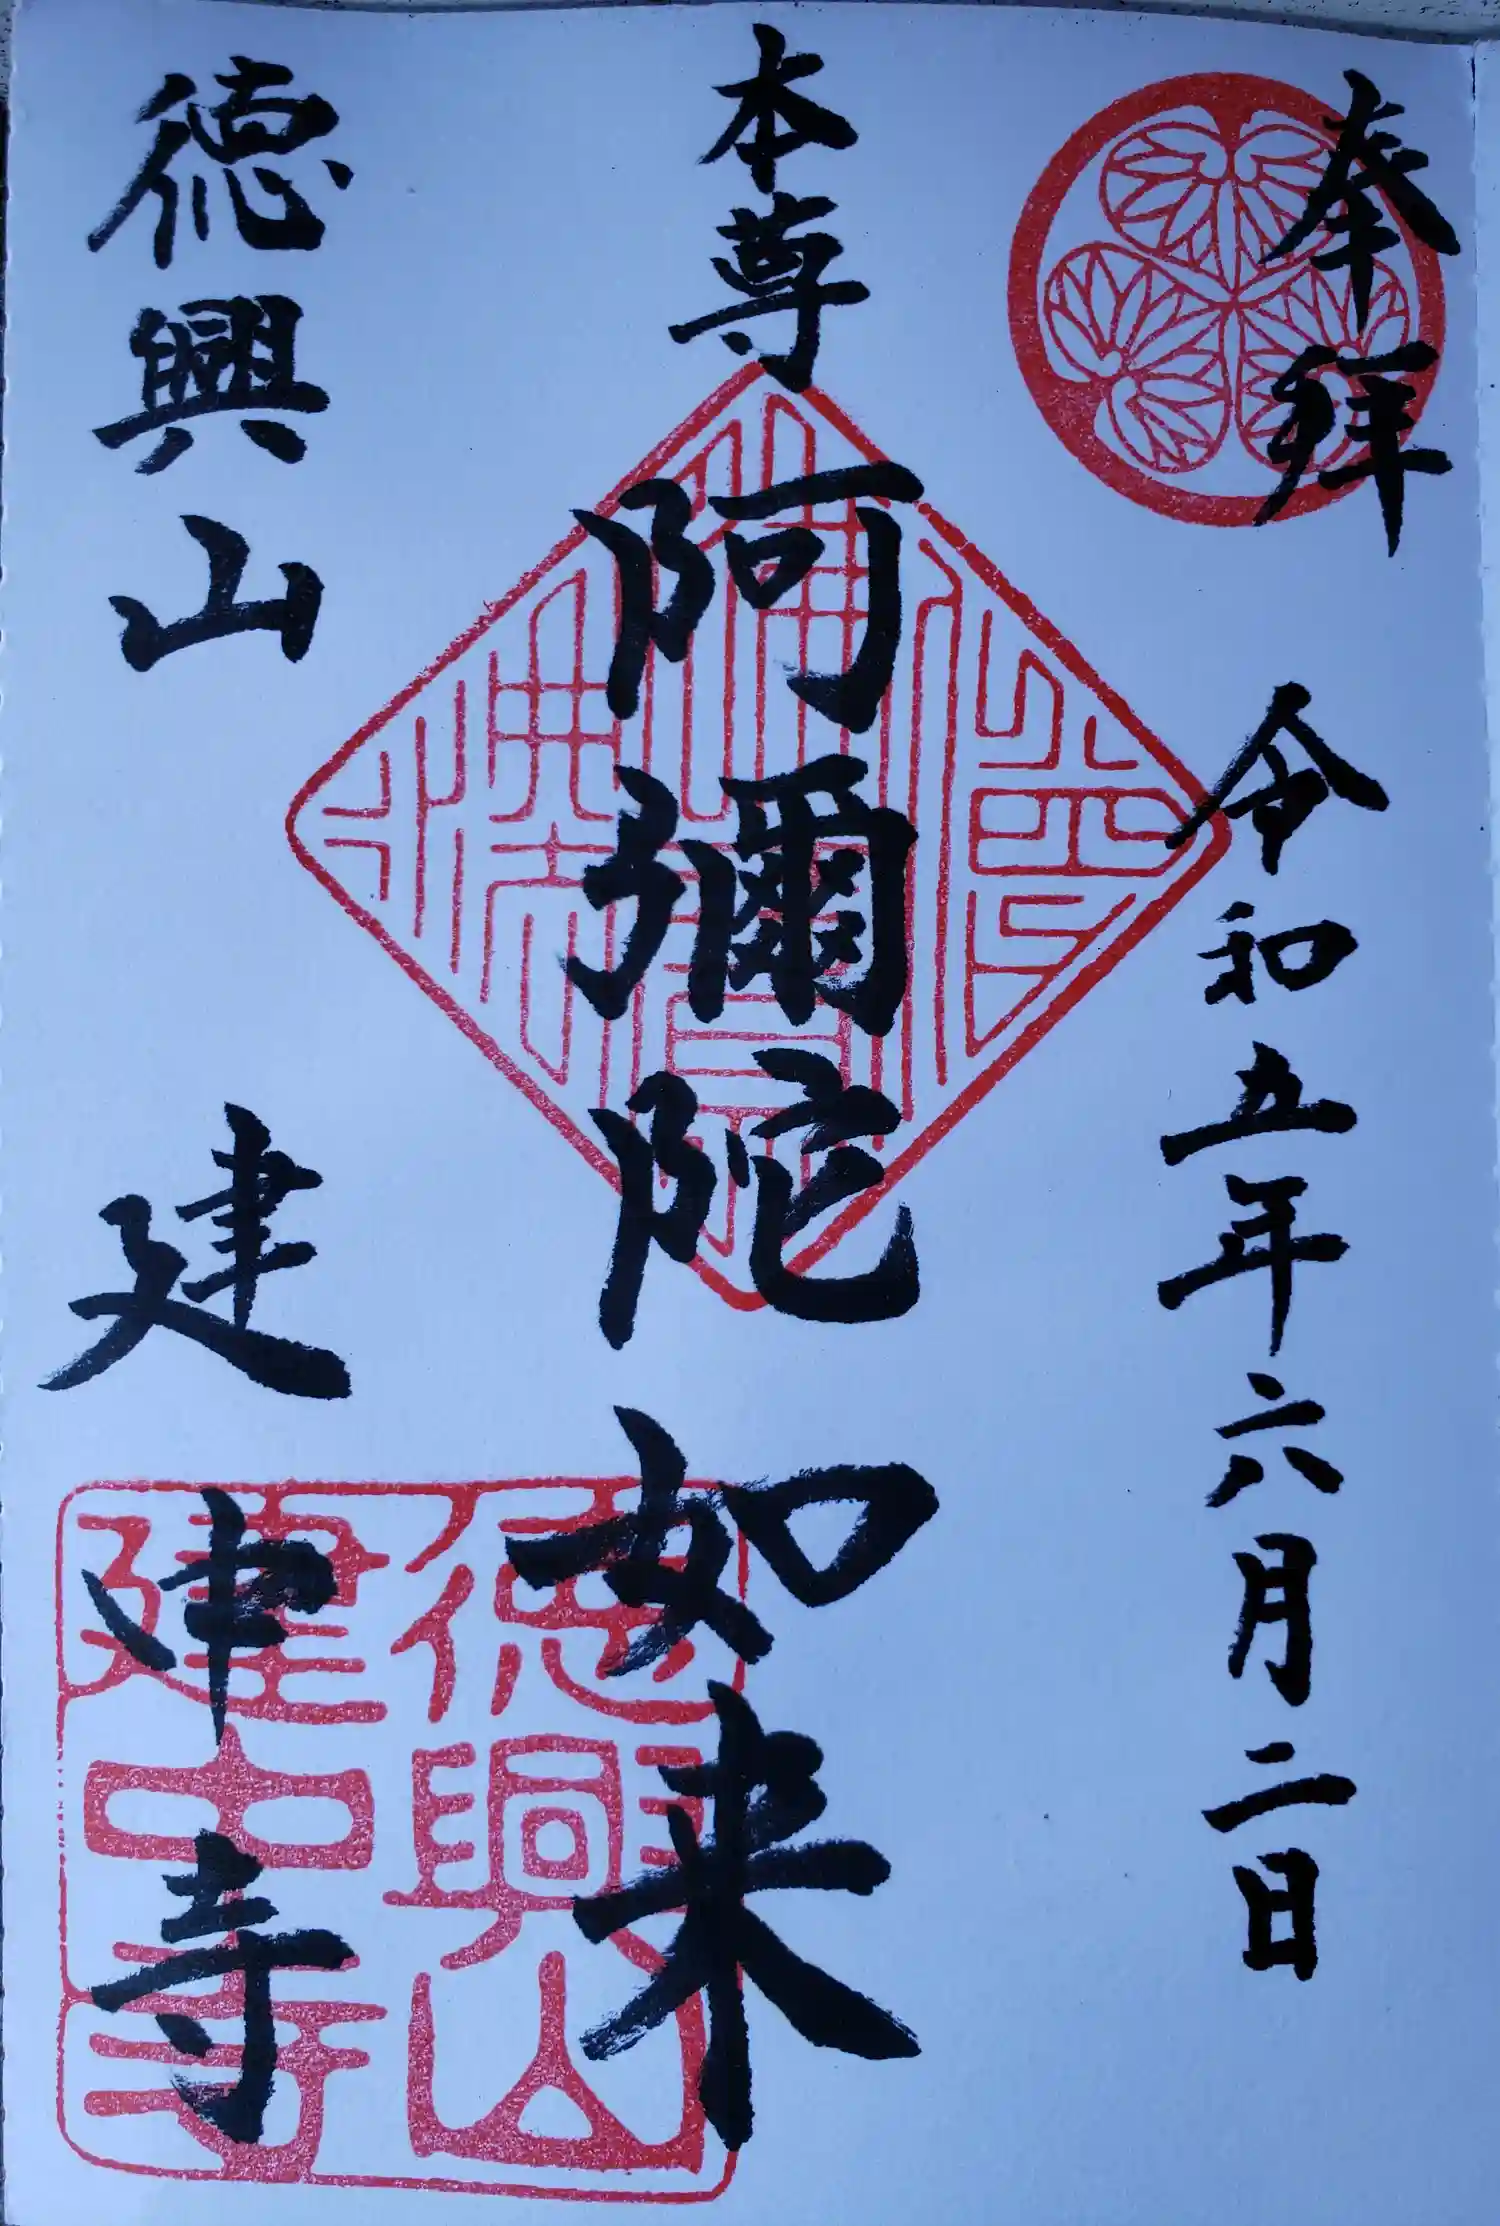 奉拜 令和五年六月二日
本尊 阿彌陀如来
徳興山 建中寺
徳興山
建中寺